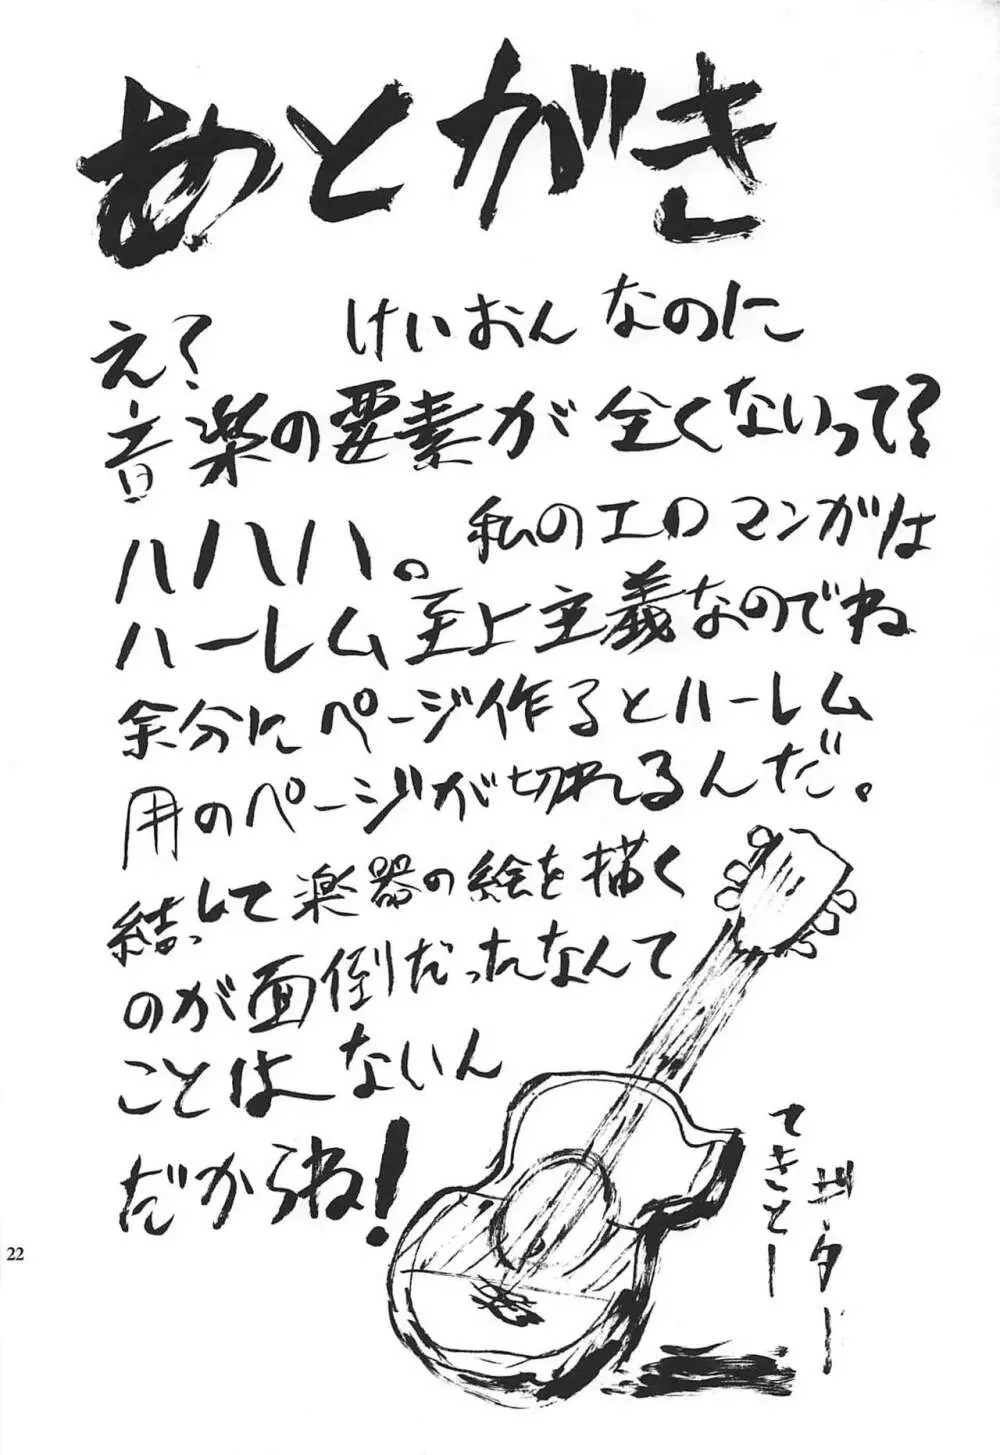 あとがき
え？ けいおんなのに
音楽の要素が全くないって？
ハハハ。私のエロマンガは
ハーレム至上主義なのでね
余分にページ作るとハーレム
用のページが切れるんだ。
結して楽器の絵を描く
のが面倒だったなんて
ことはないん
だからね！
ギター
てきとー
22